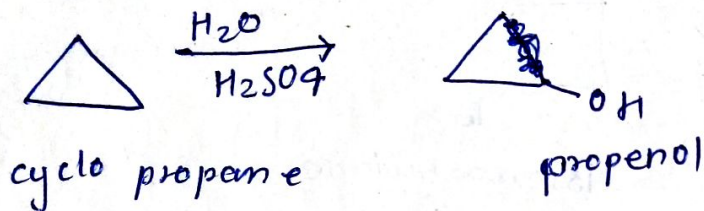 H₂O
H₂SO4
OH
cyclo propane
propenol